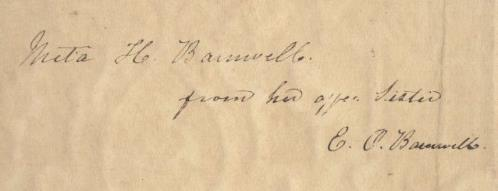 Meta H. Barnwell.
from her affec. Sister
E. P. Barnwell.